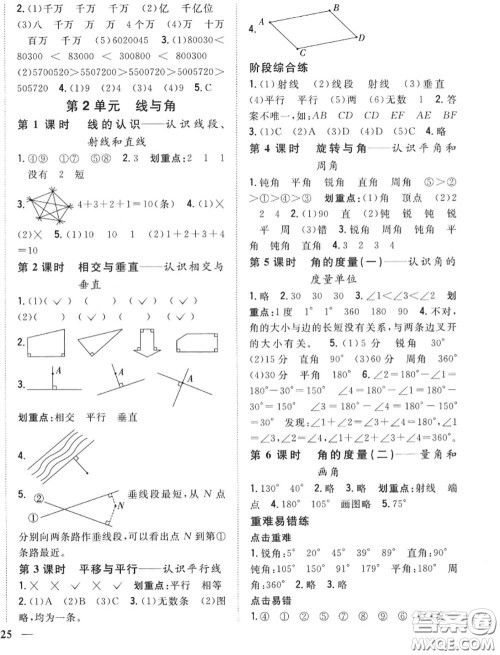 ①千万 十万 千万 (2)亿 千亿位
(3)个 千万 八 万 万 4个万 十万 千万
百万 千万 5.(2)6020045 3.(1)80030<
80300 < 83000 < 300800 < 800300
(2)5700520>5507200>5500720>5005720>
505720 4.(1)9 (2)4 (3)9 (4)9 5.C
第2单元 线与角
第1课时 线的认识——认识线段、
射线和直线
1.④⑨ ①⑦ ⑤⑧ 2.3 划重点:2 1 1
没有 2 短
3. 4+3+2+1=10(条) 4.(1)×
(2)× 5.(1)6 10 (2)1+2+3+4
=10
第2课时 相交与垂直——认识相交与
垂直
1.(1)(✓) ( ) (✓) (✓)
(2)( ) (✓) ( ) ( )
2.
3. A A
划重点:相交 平行 垂直
4.
5. ② ① N 垂线段最短,从 N 点
分别向两条路作垂线段,可以看出点 N 到第①
条路最近。
第3课时 平移与平行——认识平行线
1.× × ✓ × ✓ 划重点:平行 相等
2.(1)A (2)B (3)C 3.(1)无数条 (2)图
略,均为一条。
25
4. A B C D
阶段综合练
1.(1)射线 (2)线段 射线 (3)垂直
(4)平行 平行 (5)两 (6)无数 1 2.答
案不唯一,如:AB CD CD EF AE BF
3.(1)C (2)A (3)C (4)D 5.C 4.略
第4课时 旋转与角——认识平角和
周角
1.钝角 平角 锐角 直角 周角 ⑤>②
>①>④>③ 划重点:(1)角 顶点 (2)2
2 4 2.(1)90 直 (2)钝 锐 钝 锐
平 周 (3)错 3.锐角 周角 钝角 平
角 钝角 直角 4.3 2 3 4
第5课时 角的度量(一)——认识角的
度量单位
1.略 2.30 30 30 3.∠1<∠3<∠2 划
重点:1度 1° 1° 360 180 90 4.相等
角的大小与边的长短没有关系,与两条边叉开
的大小有关。 5.(1)5分 锐角 30°
(2)15分 直角 90° (3)60分 周角 360°
(4)30分 平角 180° 6.∠2=180°-∠1=
180°-30°=150° ∠3=180°-∠2=180°-150°=
30° ∠4=180°-∠1=180°-30°
=150° 发现:∠1+∠2=180° ∠1=
∠3,∠2=∠4,∠1+∠2+∠3+∠4=360°
第6课时 角的度量(二)——量角和
画角
1.130° 40° 2.略 划重点:射线 端
点 3.180° 105° 画图略 4.75°
重难易错练
点击重难
1.锐角:5° 20° 45° 39° 89° 直角:90°
钝角:105° 150° 91° 179° 平角:180° 周
角:360° 2.略 3.略
点击易错
1.
答案圈
MXQE.COM